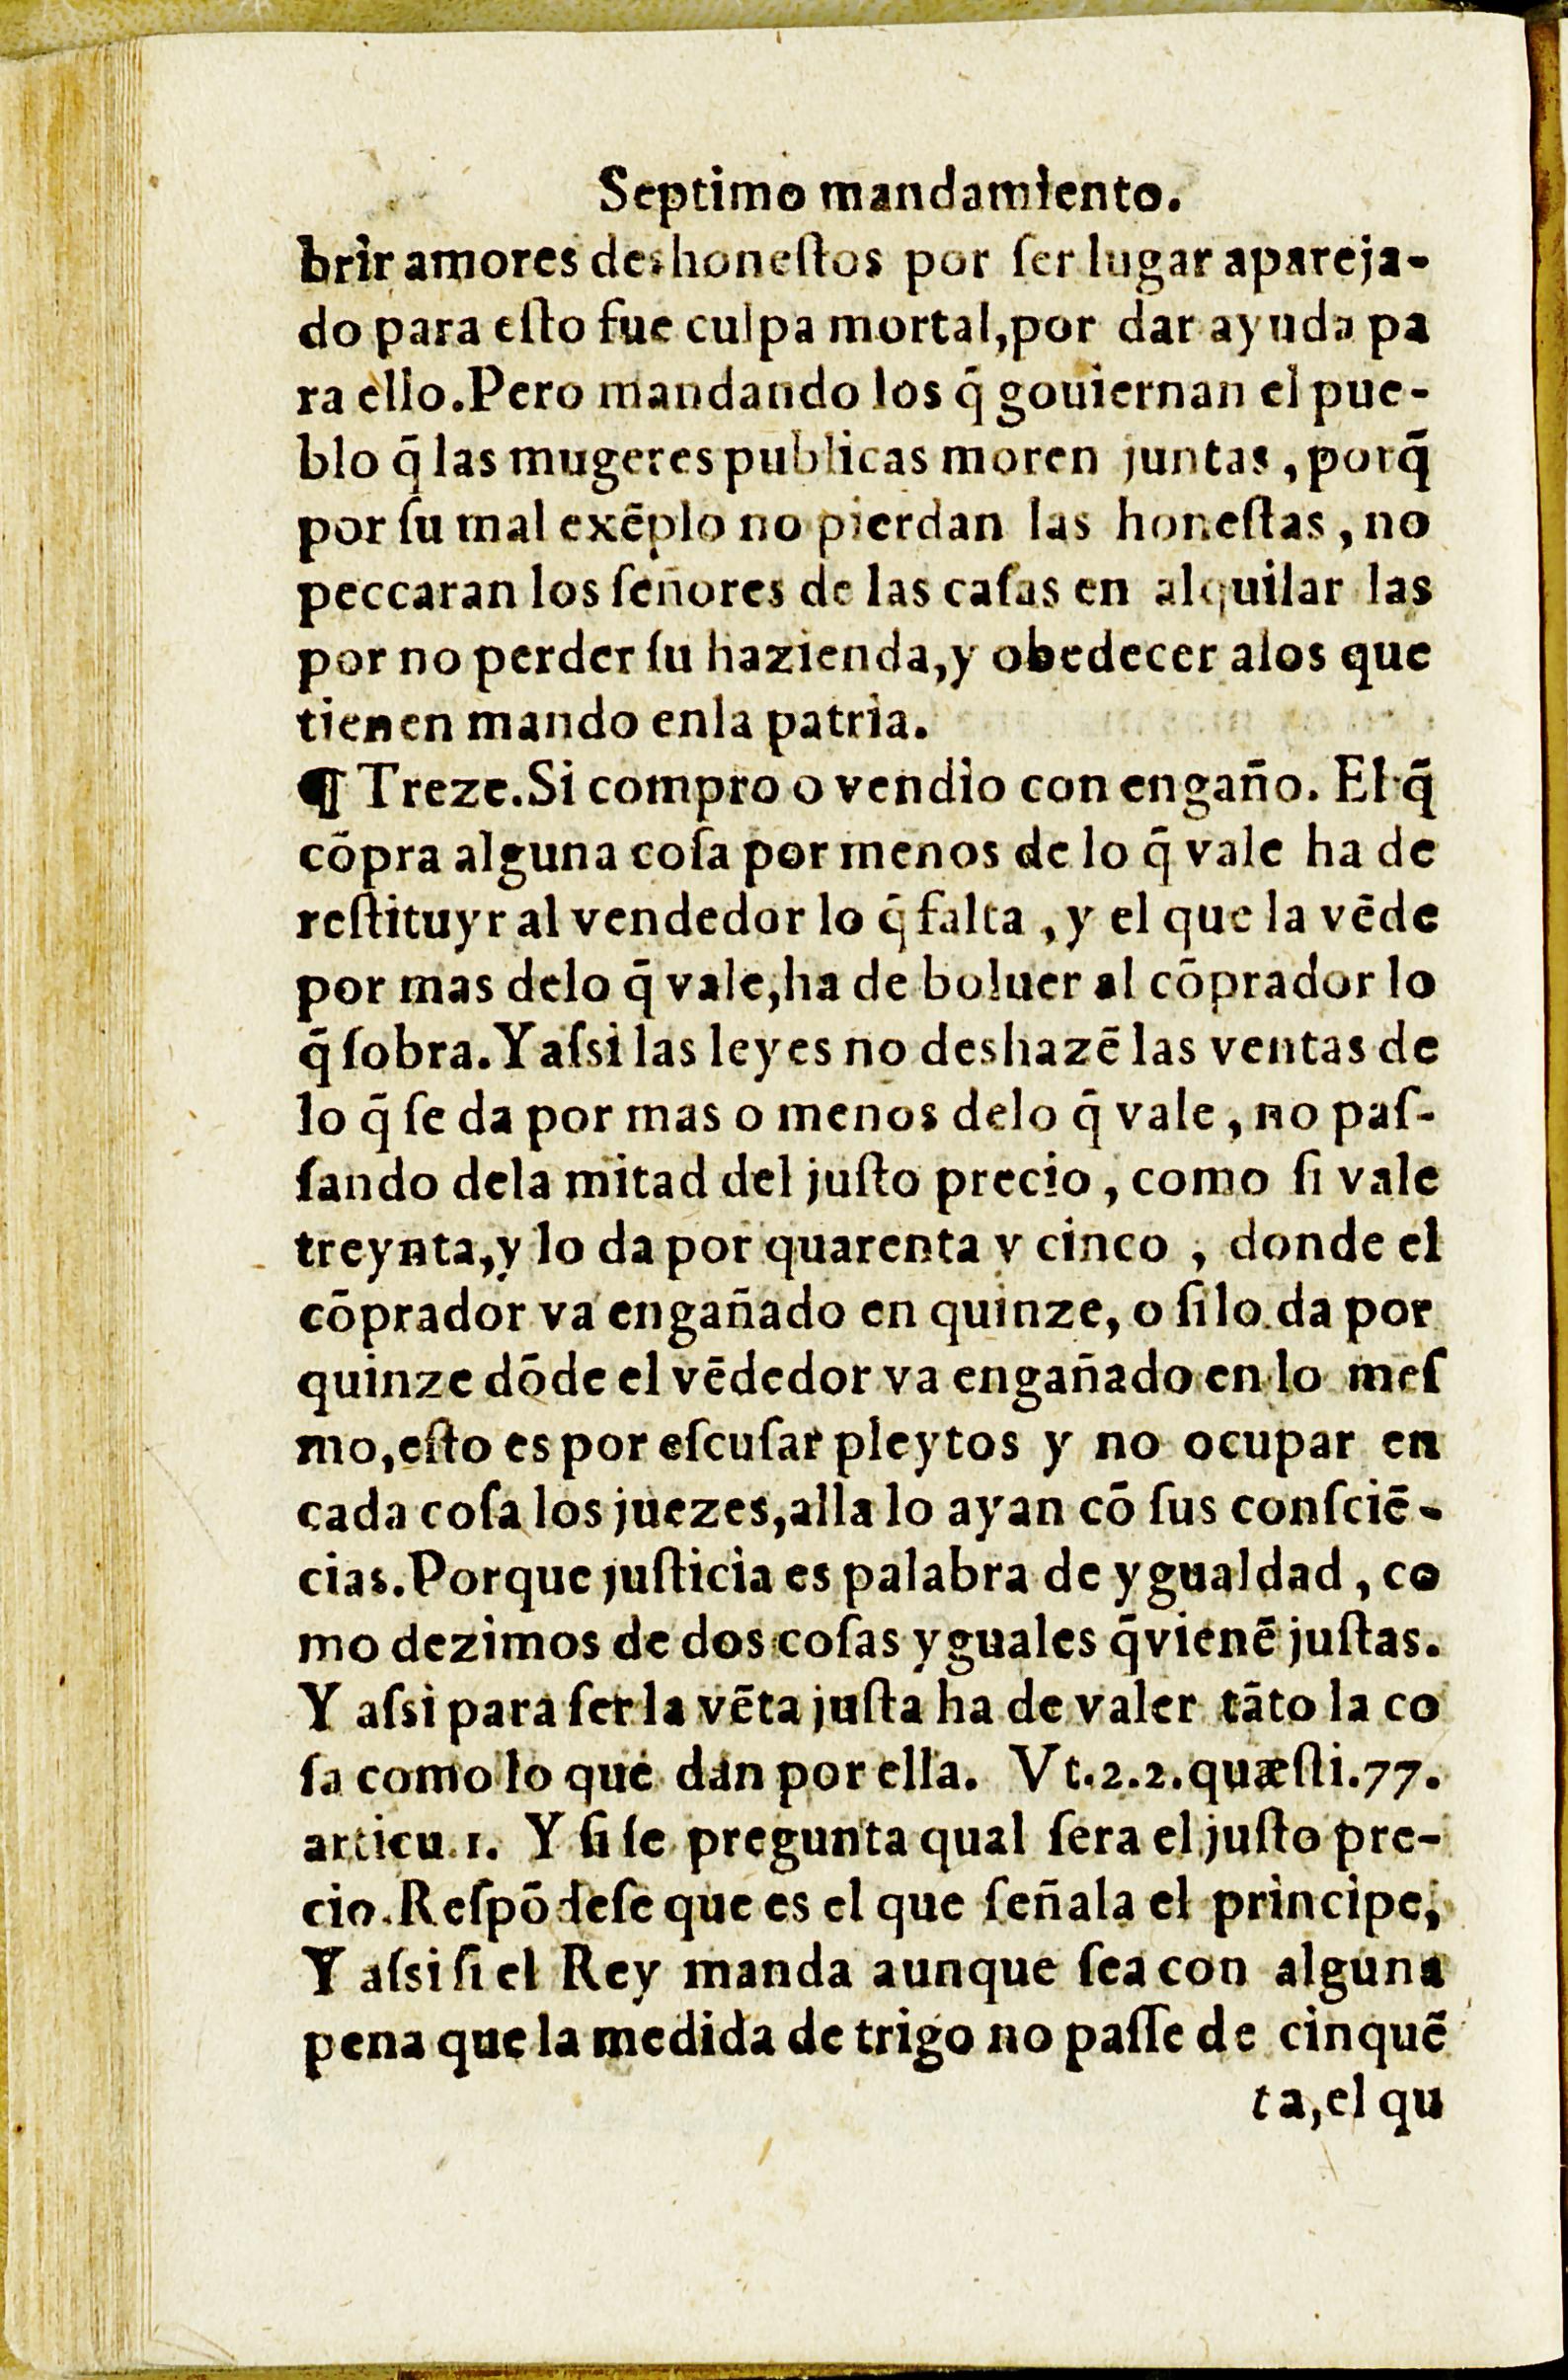 Septimo mandamiento.
brir amores deshoneſtos por ſer lugar apareja-
do para eſto fue culpa mortal,por dar ayuda pa
ra ello.Pero mandando los q̃ gouiernan el pue-
blo q̃ las mugeres publicas moren juntas, porq̃
por ſu mal exẽplo no pierdan las honeſtas, no
peccaran los ſeñores de las caſas en alquilar las
por no perder ſu hazienda,y obedecer alos que
tienen mando enla patria.
¶ Treze.Si compro o vendio con engaño. El q̃
cõpra alguna coſa por menos de lo q̃ vale ha de
reſtituyr al vendedor lo q̃ falta, y el que la vẽde
por mas delo q̃ vale,ha de boluer al cõprador lo
q̃ ſobra.Y aſsi las leyes no deshazẽ las ventas de
lo q̃ ſe da por mas o menos delo q̃ vale, no paſ-
ſando dela mitad del juſto precio, como ſi vale
treynta,y lo da por quarenta y cinco, donde el
cõprador va engañado en quinze, o ſi lo da por
quinze dõde el vẽdedor va engañado en lo meſ
mo,eſto es por eſcuſar pleytos y no ocupar en
cada coſa los juezes,alla lo ayan cõ ſus conſciẽ-
cias.Porque juſticia es palabra de ygualdad, co
mo dezimos de dos coſas yguales q̃ vienẽ juſtas.
Y aſsi para ſer la vẽta juſta ha de valer tãto la co
ſa como lo que dan por ella. Vt.2.2.quæſti.77.
articu.1. Y ſi ſe pregunta qual ſera el juſto pre-
cio.Reſpõdeſe que es el que ſeñala el principe,
Y aſsi ſi el Rey manda aunque ſea con alguna
pena que la medida de trigo no paſſe de cinquẽ
ta,el qu